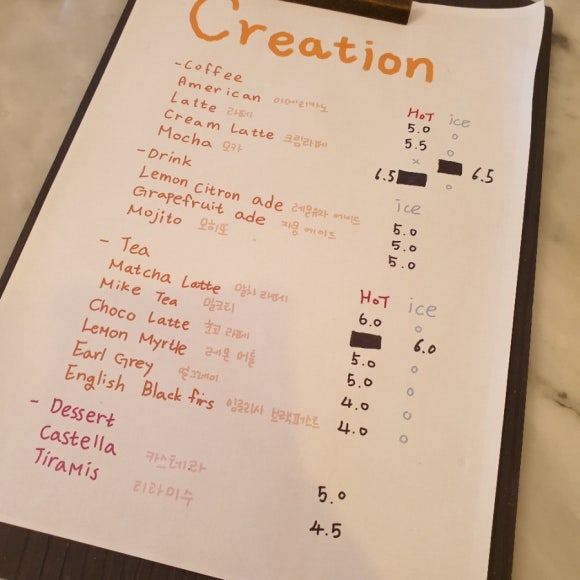 Creation
- Coffee
HOT ice
American 아메리카노 5.0 o
Latte 라떼 5.5 o
Cream Latte 크림라떼 x 6.5
Mocha 모카 6.5 o
- Drink
ice
Lemon Citron ade 레몬유자 에이드 5.0
Grapefruit ade 자몽 에이드 5.0
Mojito 모히또 5.0
- Tea
HOT ice
Matcha Latte 말차 라떼 6.0 o
Mike Tea 밀크티 6.0
Choco Latte 초코 라떼 5.0 o
Lemon Myrtle 레몬 머틀 5.0 o
Earl Grey 얼그레이 4.0 o
English Black firs 잉글리시 브랙퍼스트 4.0 o
- Dessert
Castella 카스테라 5.0
TiraMis 티라미수 4.5